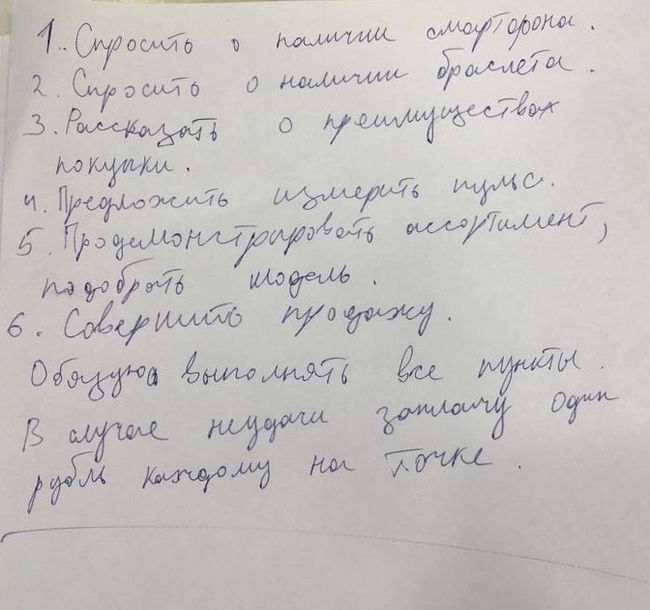 1. Спросить о наличии смартфона.
2. Спросить о наличии браслета.
3. Рассказать о преимуществах
покупки.
4. Предложить измерить пульс.
5. Продемонстрировать ассортимент,
подобрать модель.
6. Совершить продажу.
Обязуюсь выполнять все пункты.
В случае неудачи заплачу один
рубль каждому на точке.